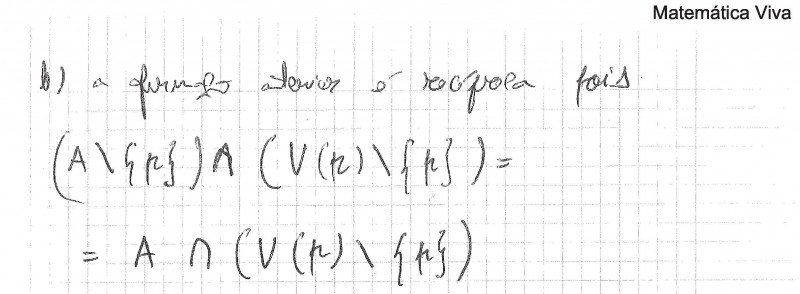 Matemática Viva
b) a anterior é recíproca pois
(A \ {p}) ∩ (V(p) \ {p}) =
= A ∩ (V(p) \ {p})